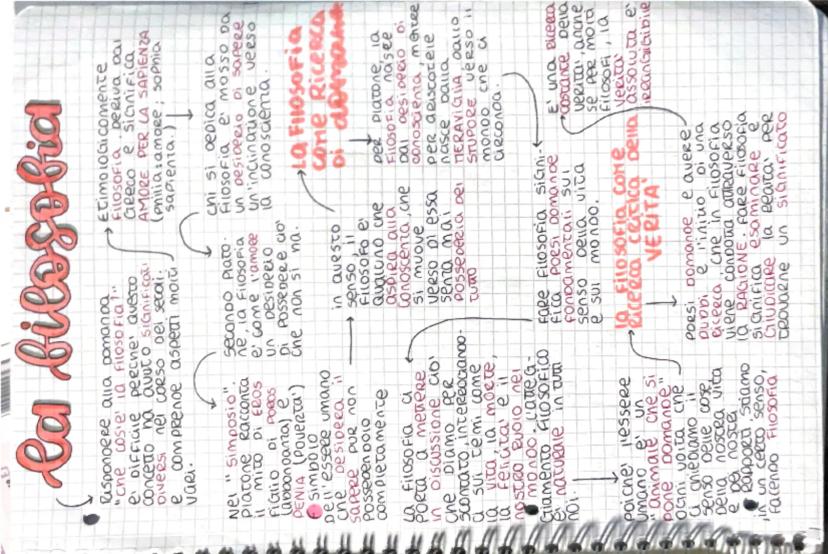 la filosofia
Rispondere alla domanda
"che cos'è la filosofia?"
è difficile perché questo
concetto ha avuto significati
diversi nel corso dei secoli
e comprende aspetti molti
vari.
Etimologicamente
filosofia deriva dal
greco e significa
AMORE PER LA SAPIENZA
(philia: amore; sophia
sapienza.)
chi si dedica alla
filosofia è mosso da
un desiderio di sapere
un'inclinazione verso
la conoscenza.
secondo Plato-
ne, la filosofia
è come l'amore
un desiderio
di possedere ciò
che non si ha.
Nel "Simposio".
Platone racconta
il mito di EROS
figlio di POROS
(abbondanza) e
PENIA (povertà)
simbolo
dell'essere umano
che desidera il
sapere pur non
possedendolo
completamente
in questo
senso, il
filosofo è
qualcuno che
aspira alla
conoscenza, che
si muove
verso di essa
senza mai
possederla del
tutto
La filosofia
come ricerca
di domande
per Platone, la
filosofia nasce
dal desiderio di
conoscenza, mentre
per Aristotele
nasce dalla
MERAVIGLIA, dallo
stupore verso il
mondo che ci
circonda.
fare filosofia signi-
fica porsi domande
fondamentali sul
senso della vita
e sul mondo.
La filosofia ci
porta a mettere
in discussione ciò
che diamo per
scontato, interrogando-
ci su temi come
la vita, la morte,
la felicità e il
nostro ruolo nel
mondo. L'atteg-
giamento filosofico
è naturale in tutti
noi.
poiché l'essere
umano è un
"animale che si
pone domande"
ogni volta che
ci chiediamo il
senso delle cose
della nostra vita
e dei nostri
rapporti stiamo
, in un certo senso,
facendo filosofia
la filosofia come
ricerca critica della
VERITÀ
porsi domande e avere
dubbi è l'inizio di una
ricerca che in filosofia
viene condotta attraverso
la RAGIONE. fare filosofia
significa esaminare e
giudicare la realtà per
trovarne un significato
È una ricerca
costante della
verità, anche
se per molti
filosofi, la
verità
assoluta è
irraggiungibile